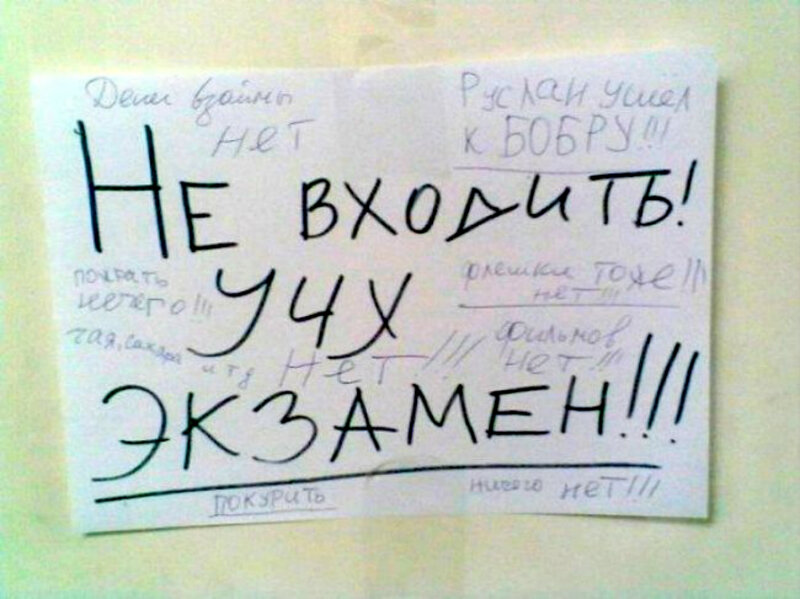 Денег взаймы
нет
Руслан ушёл
к БОБРУ!!!
НЕ ВХОДИТЬ!
пожрать
нечего!!!
УЧУ
флешки тоже!!!
нет!!!
чая, сахара
и тд
НЕТ!!!
фильмов
нет!!!
ЭКЗАМЕН!!!
ПОКУРИТЬ
ничего нет!!!